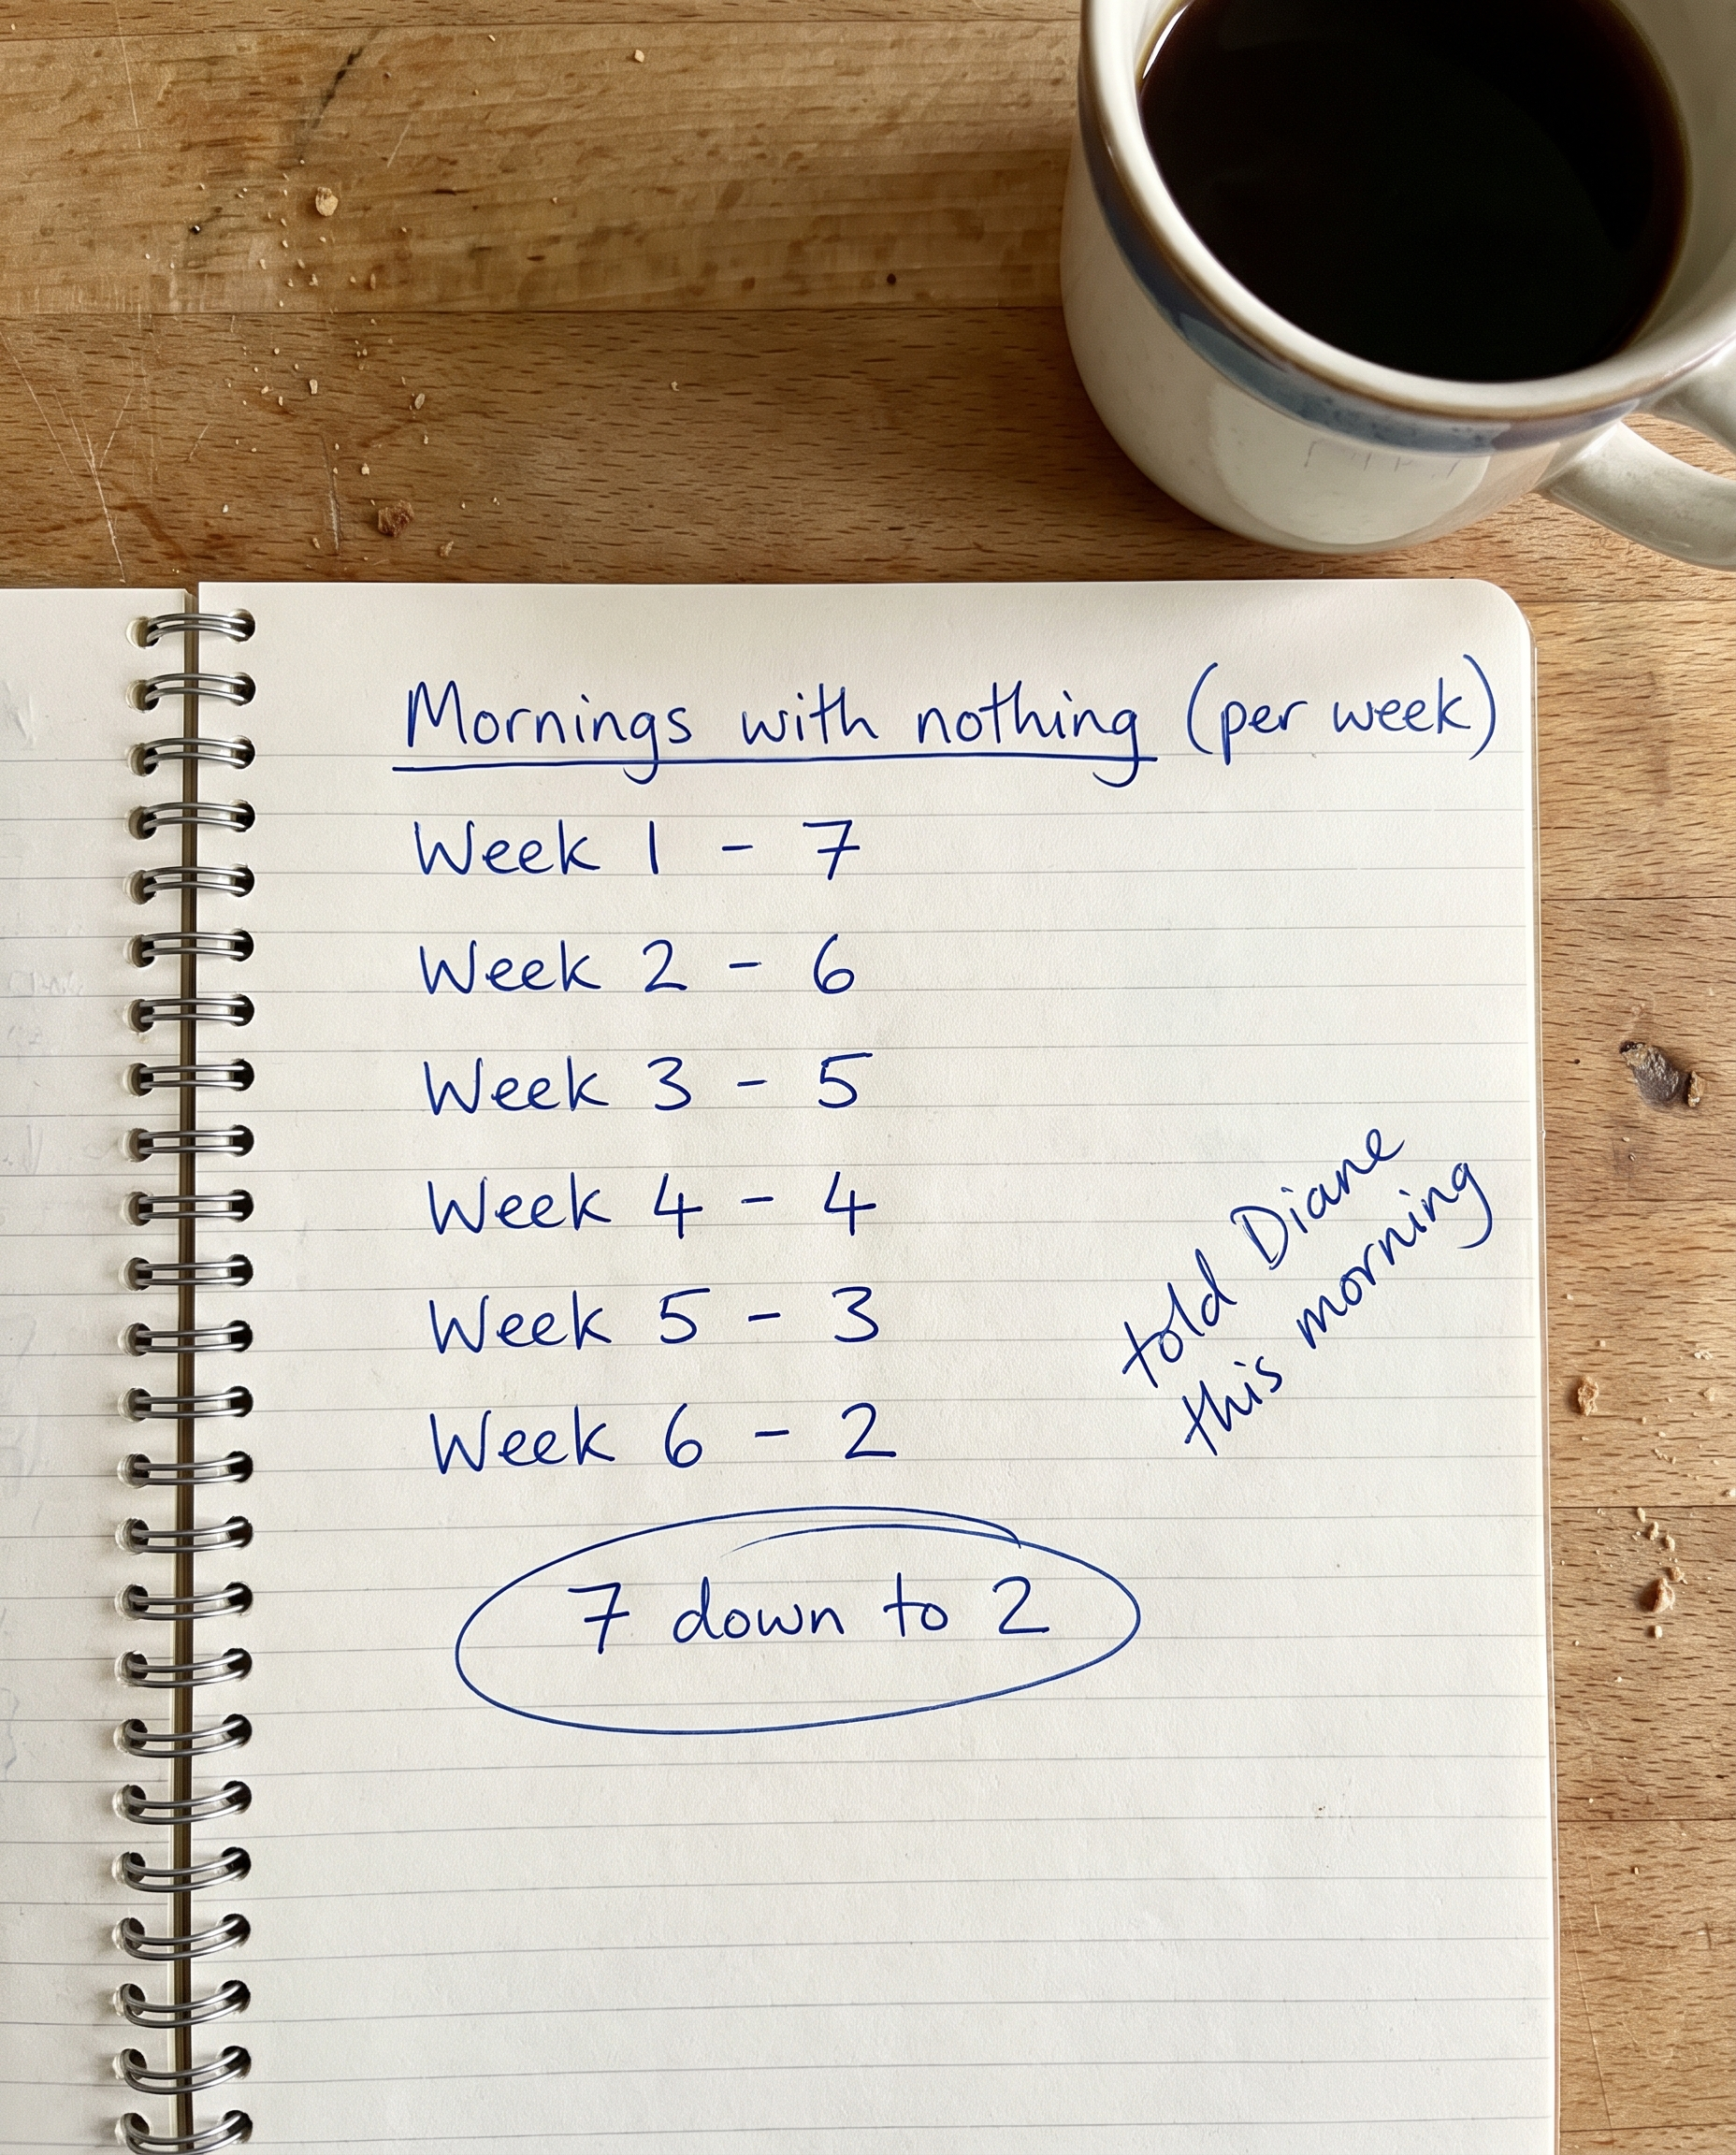 Mornings with nothing (per week)
Week 1 - 7
Week 2 - 6
Week 3 - 5
Week 4 - 4
Week 5 - 3
Week 6 - 2
told Diane
this morning
7 down to 2